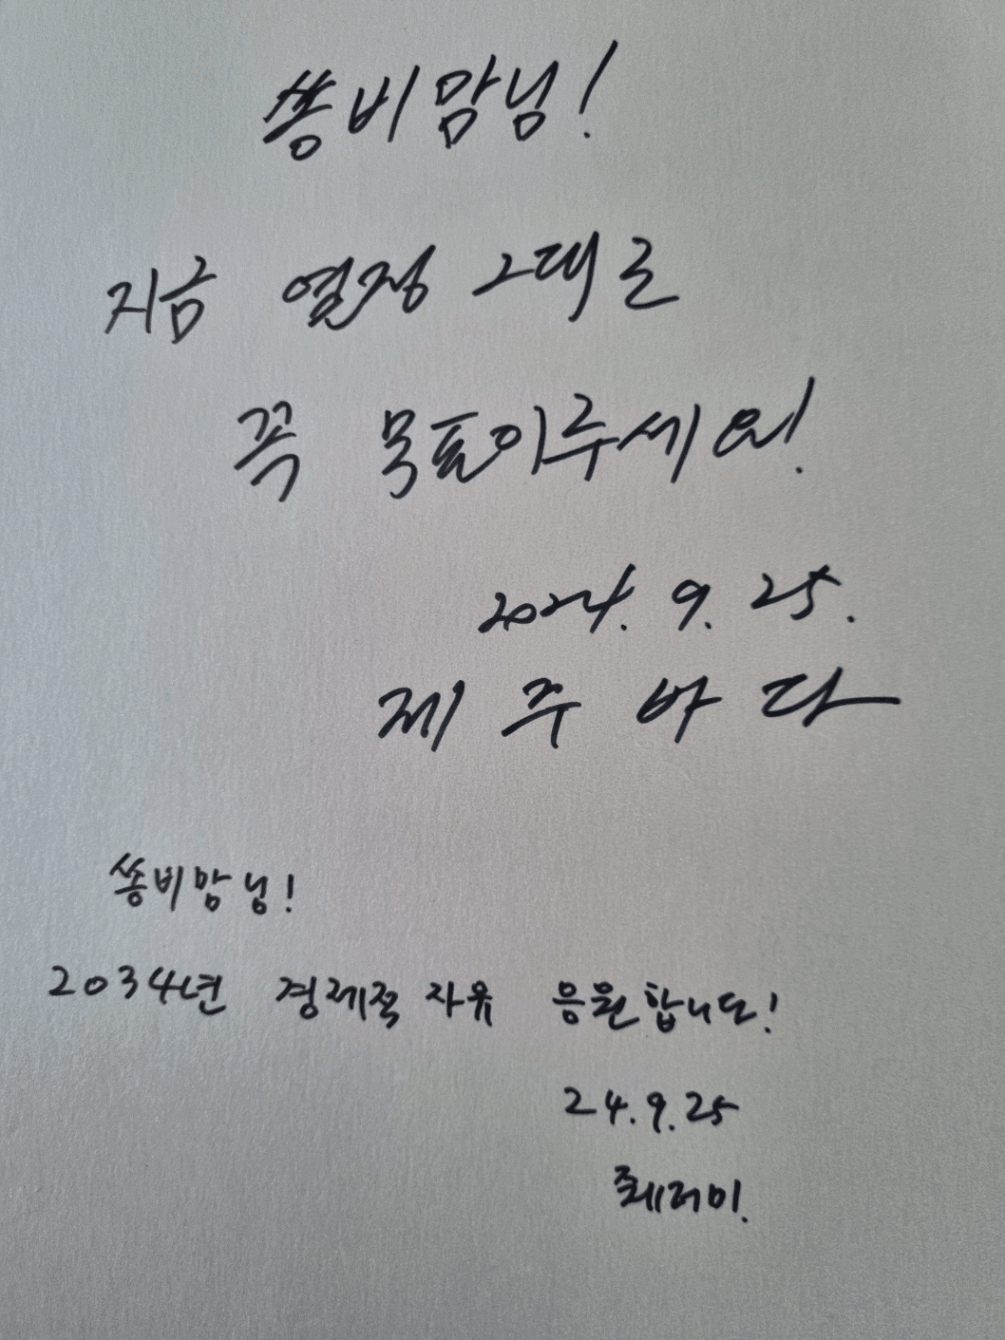 쏭비맘님!
지금 열정 그대로
꼭 목표이루세요!
2024. 9. 25.
제주바다
쏭비맘님!
2034년 경제적 자유 응원합니다!
24.9.25
쮀러미.